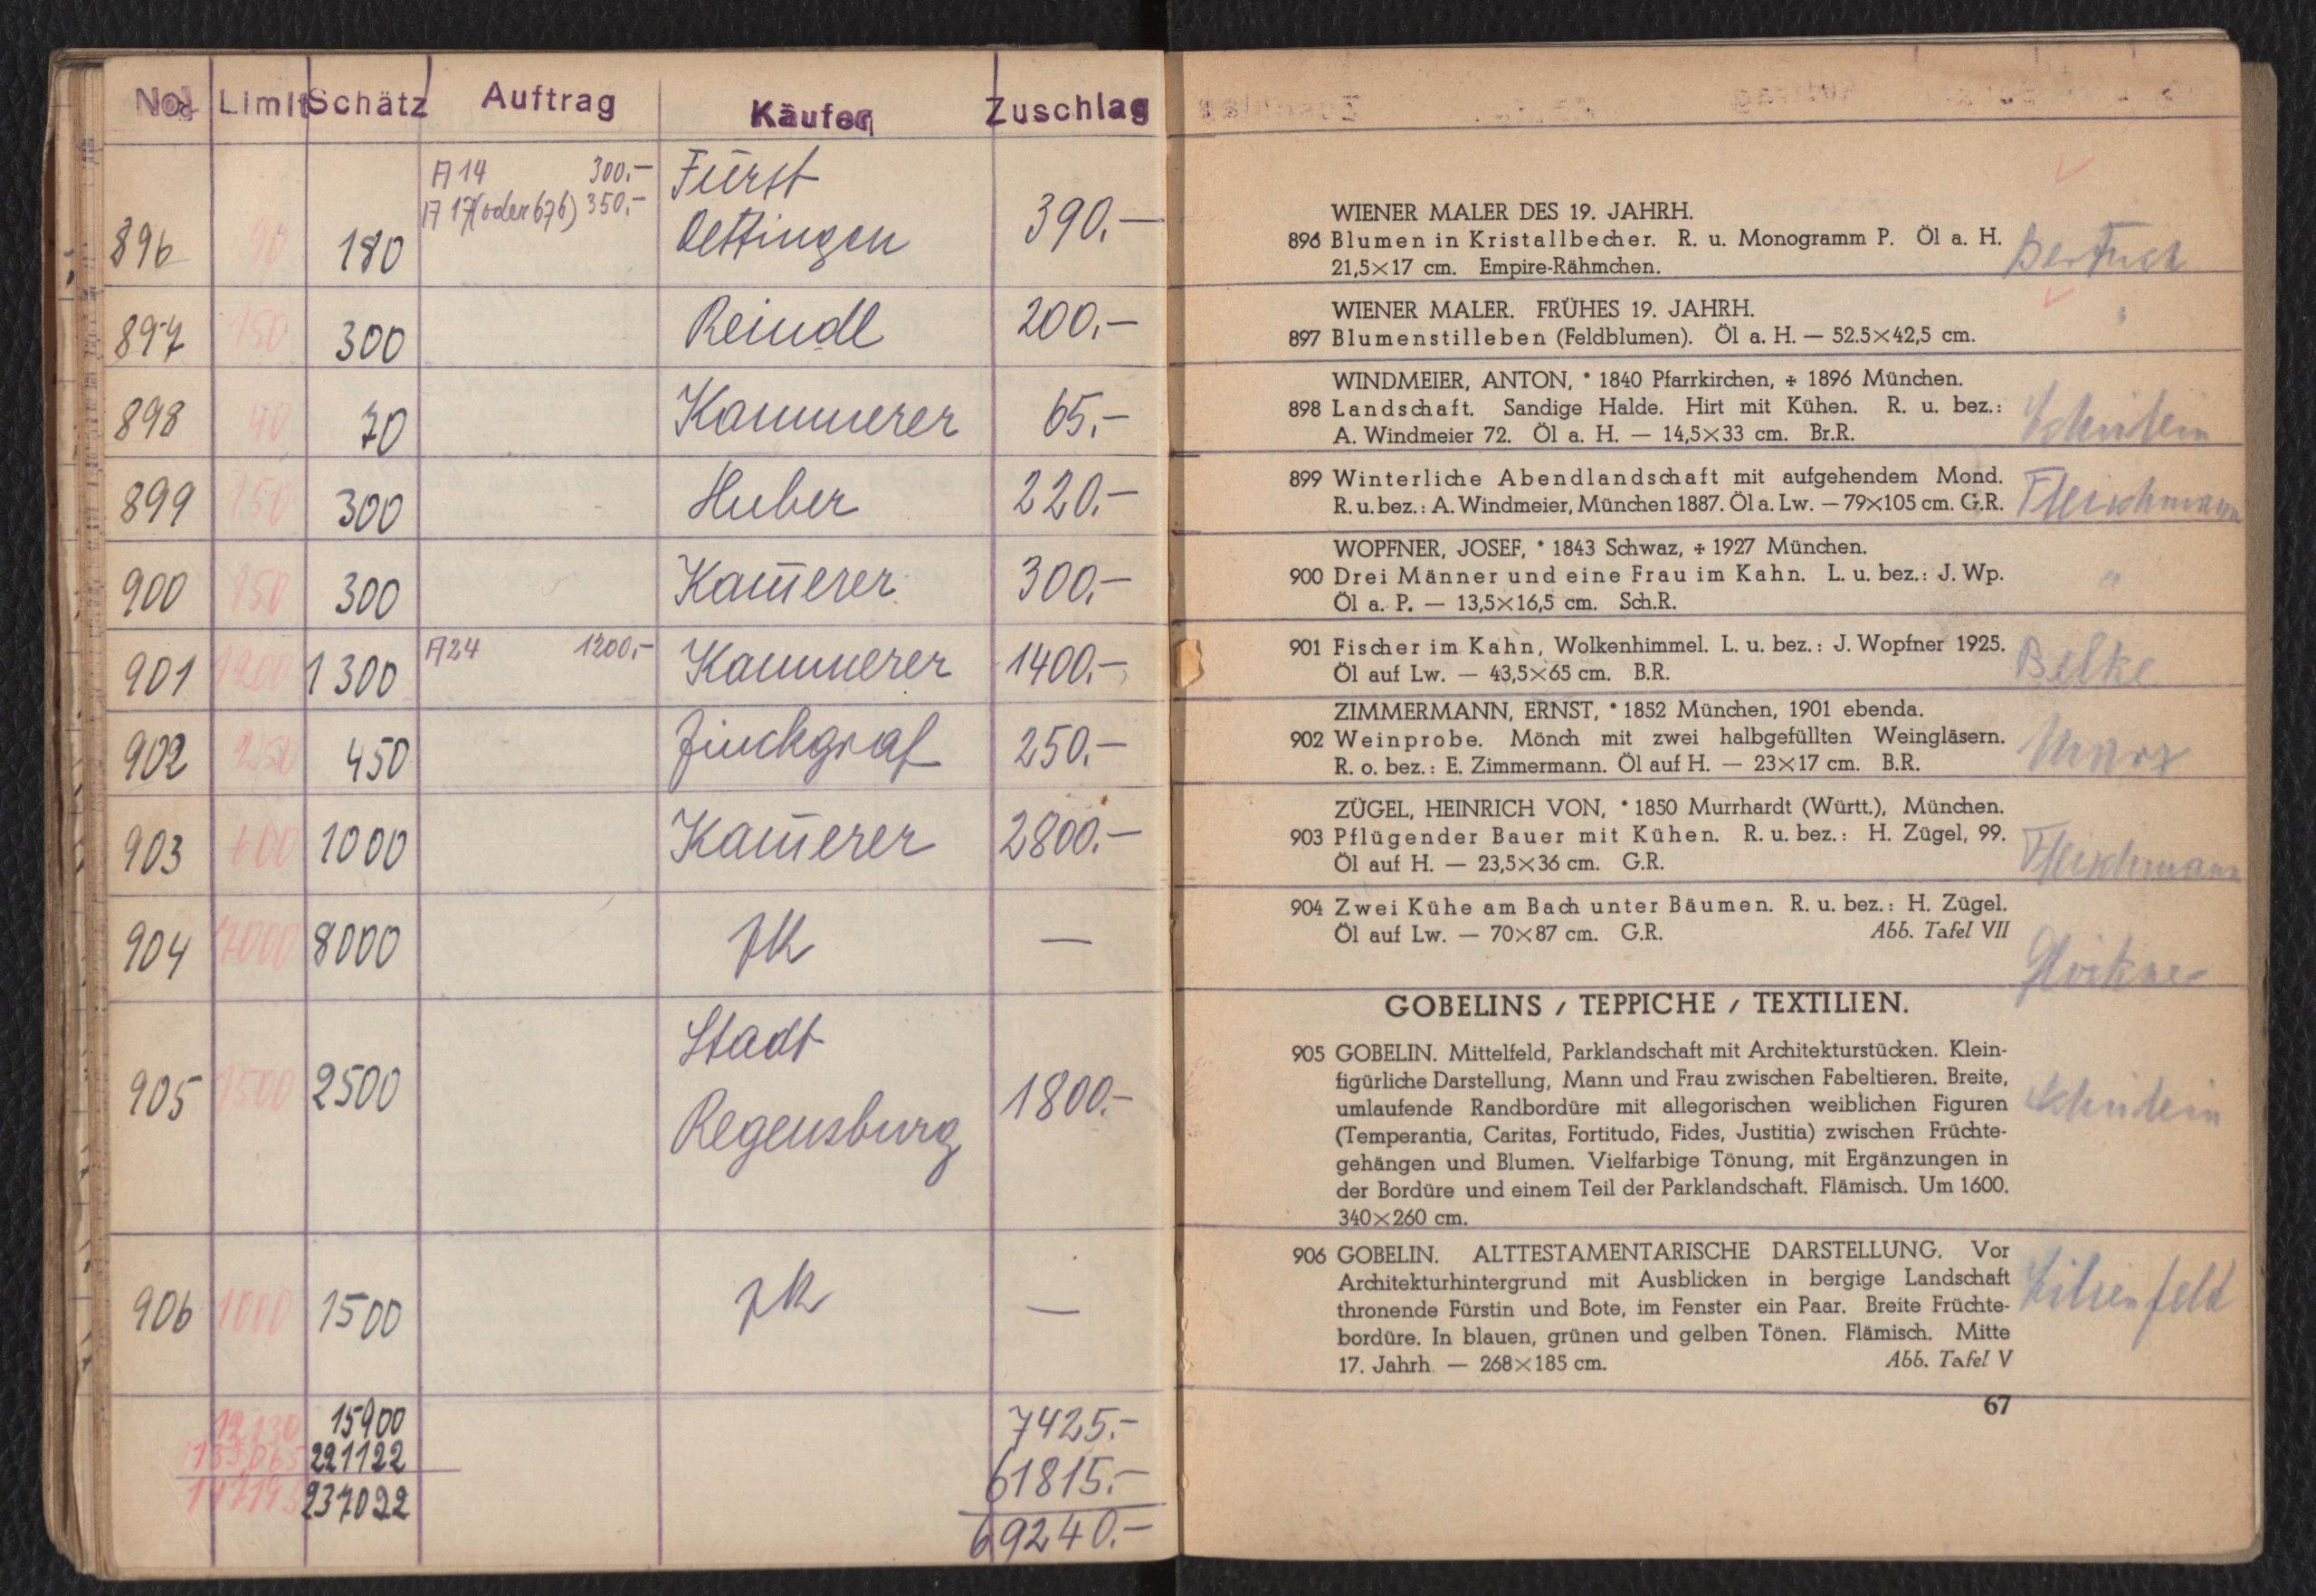 No. Limit Schätz Auftrag Käufer Zuschlag
A 14 300.– Fürst
A 17 (oder 676) 350.–
896 90 180 Oettingen 390.–
897 150 300 Reindl 200.–
898 40 70 Kammerer 65.–
899 150 300 Huber 220.–
900 150 300 Kam̄erer 300.–
A24 1200.–
901 1200 1300 Kammerer 1400.–
902 250 450 Zinckgraf 250.–
903 600 1000 Kam̄erer 2800.–
904 7000 8000 zk —
905 1500 2500 Stadt
Regensburg 1800.–
906 1000 1500 zk —
12130 15900 7425.–
221122 61815.–
237022 69240.–
WIENER MALER DES 19. JAHRH.
896 Blumen in Kristallbecher. R. u. Monogramm P. Öl a. H.
21,5×17 cm. Empire-Rähmchen.
WIENER MALER. FRÜHES 19. JAHRH.
897 Blumenstilleben (Feldblumen). Öl a. H. — 52.5×42,5 cm.
WINDMEIER, ANTON, * 1840 Pfarrkirchen, + 1896 München.
898 Landschaft. Sandige Halde. Hirt mit Kühen. R. u. bez.:
A. Windmeier 72. Öl a. H. — 14,5×33 cm. Br.R.
899 Winterliche Abendlandschaft mit aufgehendem Mond.
R. u. bez.: A. Windmeier, München 1887. Öl a. Lw. — 79×105 cm. G.R.
Fleischmann
WOPFNER, JOSEF, * 1843 Schwaz, + 1927 München.
900 Drei Männer und eine Frau im Kahn. L. u. bez.: J. Wp.
"
Öl a. P. — 13,5×16,5 cm. Sch.R.
901 Fischer im Kahn, Wolkenhimmel. L. u. bez.: J. Wopfner 1925.
Öl auf Lw. — 43,5×65 cm. B.R.
ZIMMERMANN, ERNST, * 1852 München, 1901 ebenda.
902 Weinprobe. Mönch mit zwei halbgefüllten Weingläsern.
R. o. bez.: E. Zimmermann. Öl auf H. — 23×17 cm. B.R.
ZÜGEL, HEINRICH VON, * 1850 Murrhardt (Württ.), München.
903 Pflügender Bauer mit Kühen. R. u. bez.: H. Zügel, 99.
Öl auf H. — 23,5×36 cm. G.R.
Fleischmann
904 Zwei Kühe am Bach unter Bäumen. R. u. bez.: H. Zügel.
Öl auf Lw. — 70×87 cm. G.R. Abb. Tafel VII
GOBELINS / TEPPICHE / TEXTILIEN.
905 GOBELIN. Mittelfeld, Parklandschaft mit Architekturstücken. Klein-
figürliche Darstellung, Mann und Frau zwischen Fabeltieren. Breite,
umlaufende Randbordüre mit allegorischen weiblichen Figuren
(Temperantia, Caritas, Fortitudo, Fides, Justitia) zwischen Früchte-
gehängen und Blumen. Vielfarbige Tönung, mit Ergänzungen in
der Bordüre und einem Teil der Parklandschaft. Flämisch. Um 1600.
340×260 cm.
906 GOBELIN. ALTTESTAMENTARISCHE DARSTELLUNG. Vor
Architekturhintergrund mit Ausblicken in bergige Landschaft
Lilienfeld
thronende Fürstin und Bote, im Fenster ein Paar. Breite Früchte-
bordüre. In blauen, grünen und gelben Tönen. Flämisch. Mitte
17. Jahrh — 268×185 cm. Abb. Tafel V
67